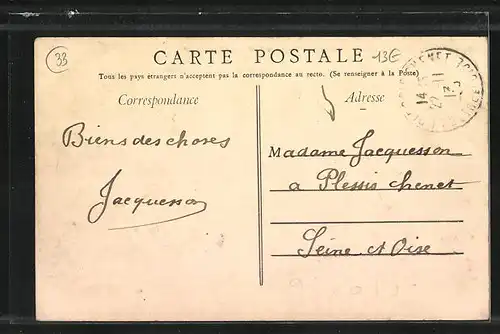 33
CARTE POSTALE
13€
Tous les pays étrangers n'acceptent pas la correspondance au recto. (Se renseigner à la Poste)
Correspondance
Adresse
Biens des choses
Jacquesson
Madame Jacquesson
a Plessis chenet
Seine et Oise